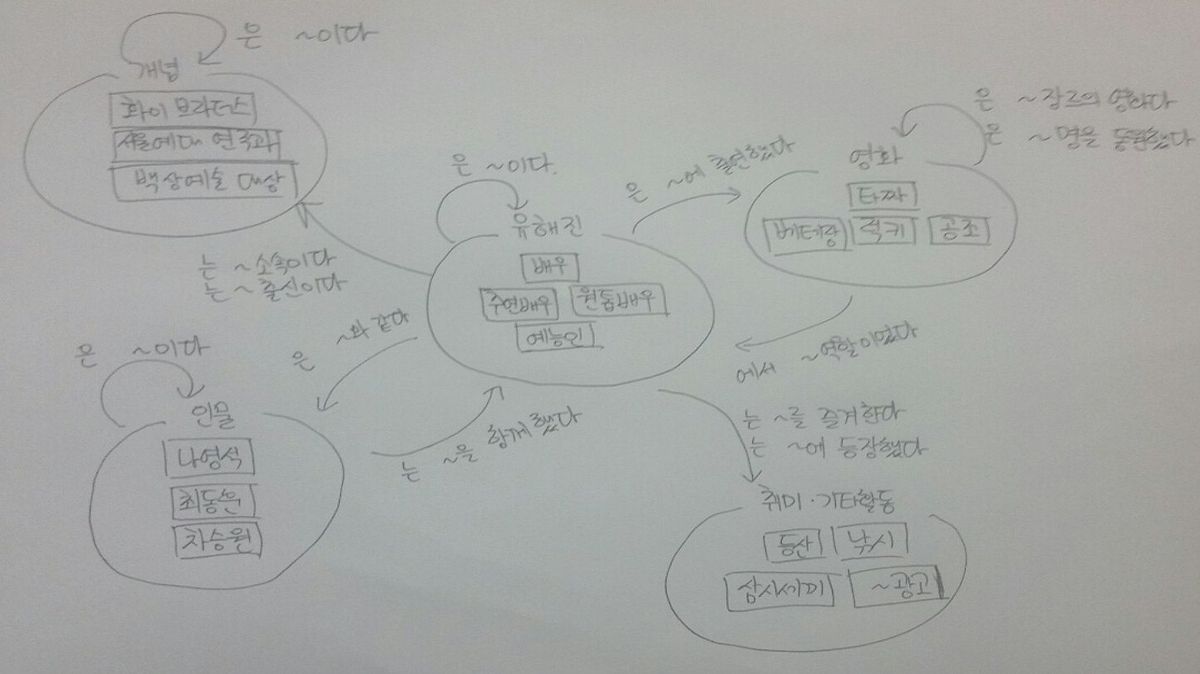 은 ~이다
개념
화이브라더스
서울예대 연극과
백상예술 대상
은 ~장르의 영화다
은 ~명을 동원했다
영화
타짜
베테랑
럭키
공조
은 ~이다.
유해진
배우
주연배우
원톱배우
예능인
은 ~에 출연했다
는 ~소속이다
는 ~출신이다
은 ~와 같다
에서 ~역할이었다
은 ~이다
인물
나영석
최동훈
차승원
는 ~을 함께했다
는 ~를 즐겨한다
는 ~에 등장했다
취미·기타활동
등산
낚시
삼시세끼
~광고